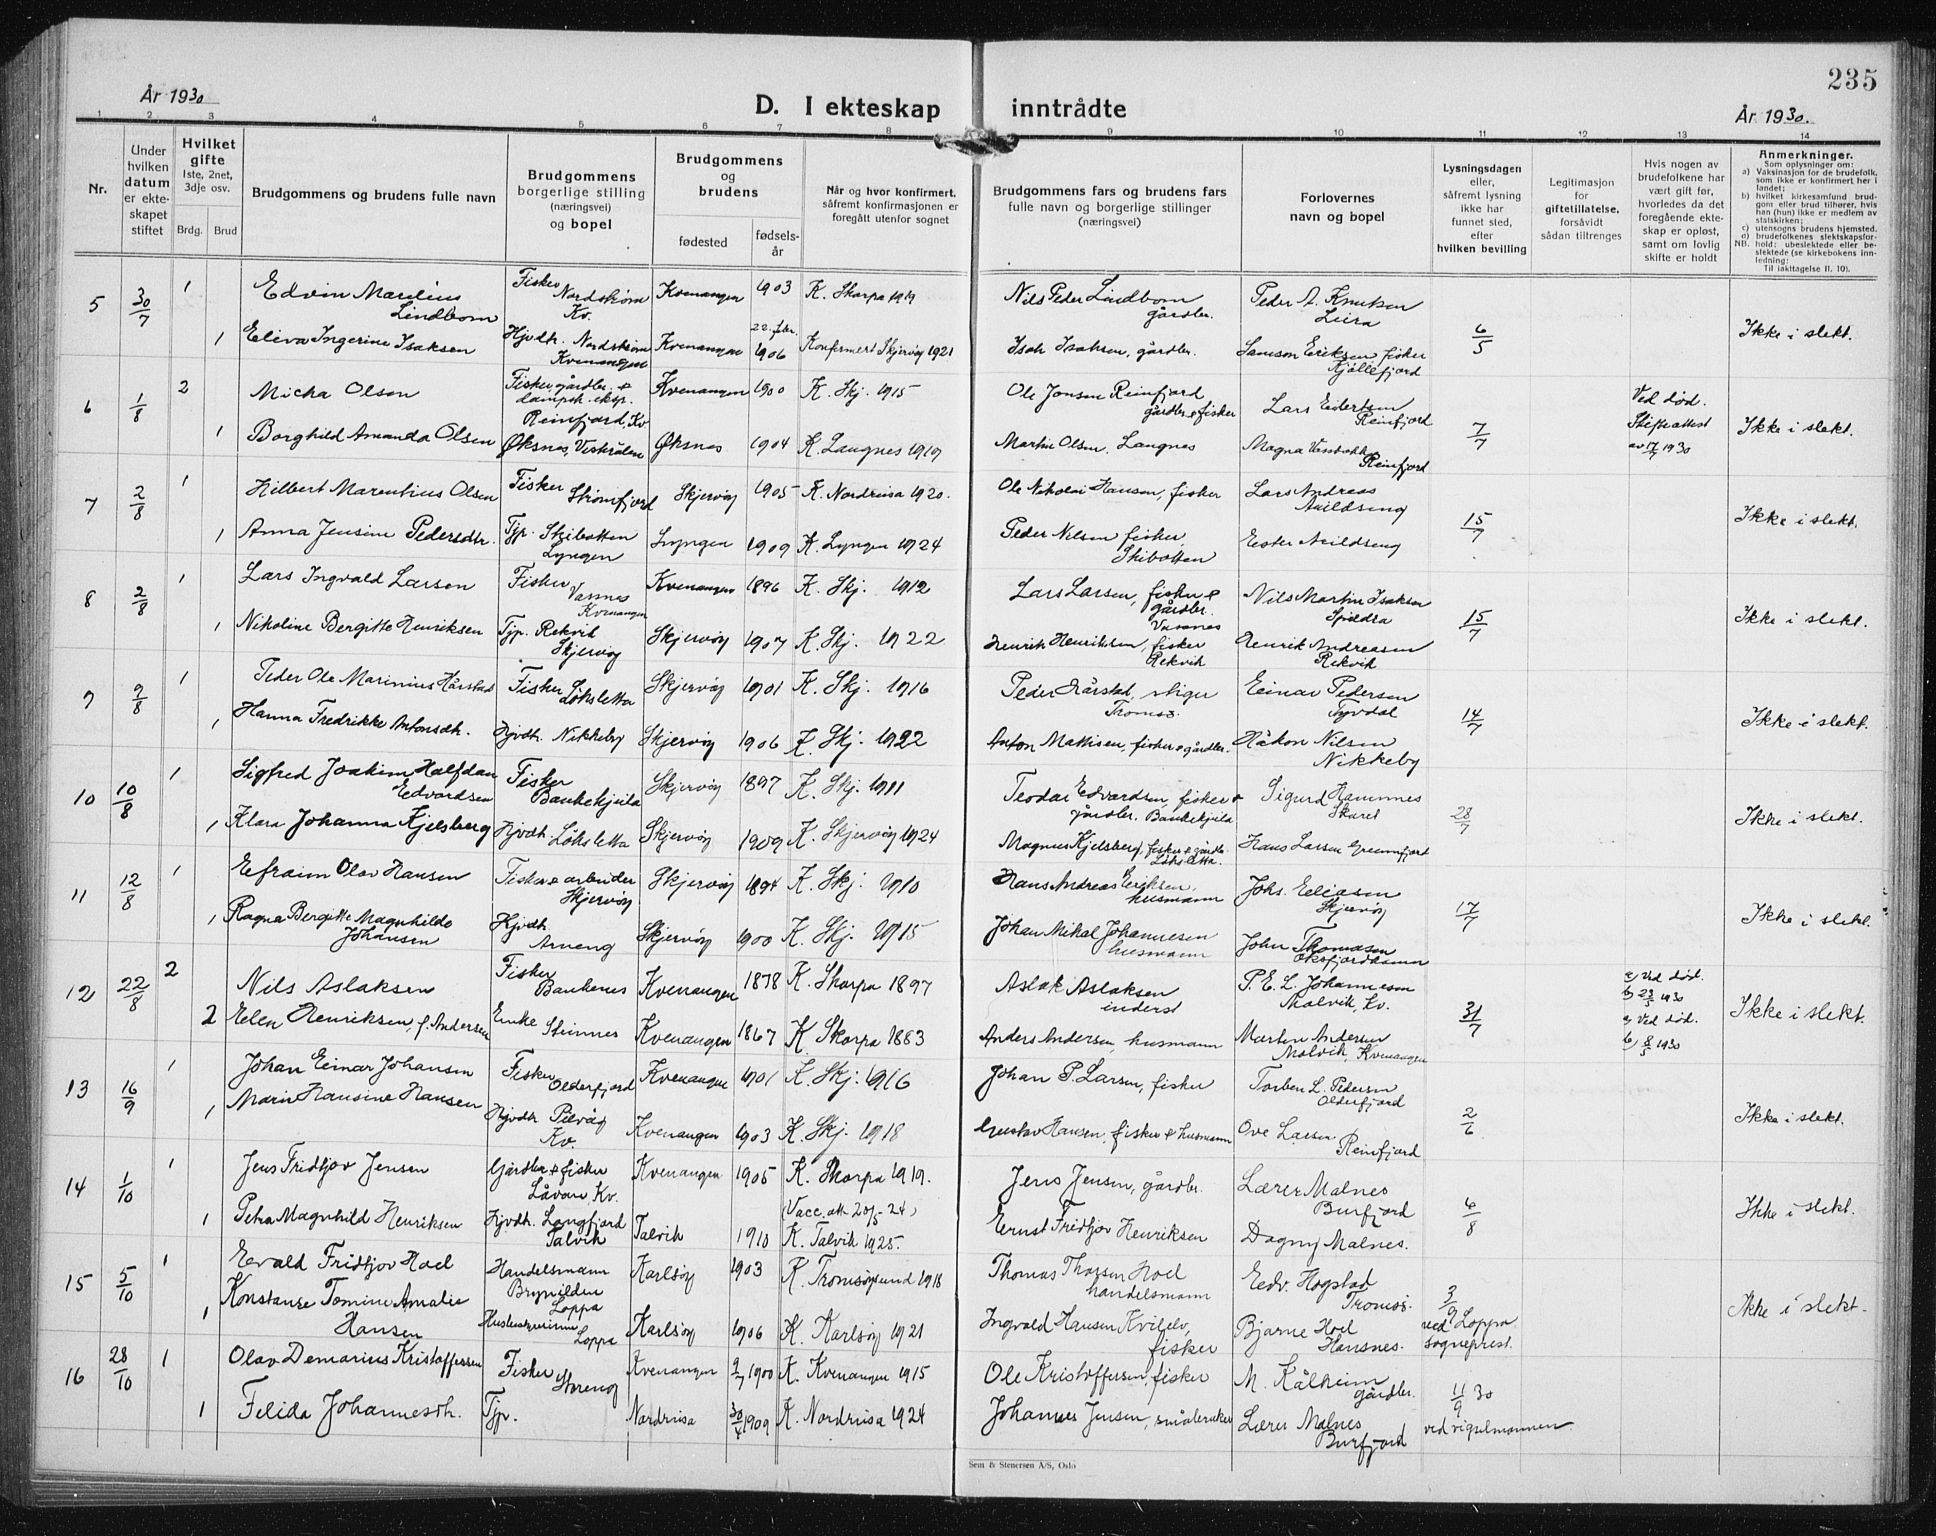 235
År 1930
D. I ekteskap inntrådte
År 1930.
1 2 3 4 5 6 7 8 9 10 11 12 13 14
Nr.
Under hvilken datum er ekteskapet stiftet
Hvilket gifte 1ste, 2net, 3dje osv.
Brdg. Brud
Brudgommens og brudens fulle navn
Brudgommens borgerlige stilling (næringsvei) og bopel
Brudgommens og brudens
fødested
fødselsår
Når og hvor konfirmert, såfremt konfirmasjonen er foregått utenfor sognet
Brudgommens fars og brudens fars fulle navn og borgerlige stillinger (næringsvei)
Forlovernes navn og bopel
Lysningsdagen eller, såfremt lysning ikke har funnet sted, efter hvilken bevilling
Legitimasjon for giftetillatelse, forsåvidt sådan tiltrenges
Hvis nogen av brudefolkene har vært gift før, hvorledes da det foregående ekteskap er opløst, samt om lovlig skifte er holdt
Anmerkninger.
Som oplysninger om:
a) Vaksinasjon for de brudefolk, som ikke er konfirmert her i landet;
b) hvilket kirkesamfund brudgom eller brud tilhører, hvis han (hun) ikke er medlem av statskirken;
c) utensogns brudens hjemsted.
d) brudefolkenes slektskapsforhold: ubeslektede eller beslektede (se kirkebokens innledning:
NB.
Til iakttagelse II. 10).
5 30/7 1 Edvin Marelius Lindbom Fisker Nordstrøm Kv. Kvenangen 1903 K. Skorpa 1919 Nils Peder Lindbom gårdbr. Peder A. Knutsen Leira 6/5 Ikke i slekt.
1 Eliva Ingerine Isaksen Hjvdtr. Nordstrøm Kvenangen Kvenangen 22. fbr. 1906 Konfirmert Skjervøy 1921 Isak Isaksen, gårdbr. Samson Eriksen fisker Kjøllefjord
6 1/8 2 Micha Olsen Fisker, gårdbr. & dampsk. eksp. Reinfjord, Kv. Kvenangen 1900 K. Skj. 1915 Ole Jonsen Reinfjord gårdbr & fisker Lars Eilertsen Reinfjord 7/7 Ved død. Skifteattest av 17/7 1930 Ikke i slekt.
1 Borghild Amanda Olsen Øksnes, Vesterålen Øksnes 1904 K. Langnes 1919 Martin Olsen, Langnes Magna Reinfjord
7 2/8 1 Hilbert Marentius Olsen Fisker Strømfjord Skjervøy 1905 K. Nordreisa 1920. Ole Nikolai Hansen, fisker Lars Andreas Arildseng 15/7 Ikke i slekt.
1 Anna Jensine Pedersdtr. Tjp. Skibotten Lyngen Lyngen 1909 K. Lyngen 1924 Peder Nilsen fisker, Skibotten Ester Arildseng
8 2/8 1 Lars Ingvald Larsen Fisker Vasnes Kvenangen Kvenangen 1896 K. Skj. 1912 Lars Larsen, fisker & gårdbr. Vassnes Nils Martin Isaksen Spildra 15/7 Ikke i slekt.
1 Nikoline Bergitte Henriksen Tjp. Rekvik Skjervøy Skjervøy 1907 K. Skj. 1922 Henrik Henriksen, fisker Rekvik Henrik Andreasen Rekvik
9 9/8 1 Peder Ole Marinius Hårstad Fisker Løksletta Skjervøy 1901 K. Skj. 1916 Peder Hårstad, stiger Tromsø. Einar Pedersen Tyvdal 14/7 Ikke i slekt.
1 Hanna Fredrikke Antonsdtr. Hjvdtr. Nikkeby Skjervøy 1906 K. Skj. 1922 Anton Mathisen, fisker & gårdbr. Håkon Nilsen Nikkeby
10 10/8 1 Sigfred Joakim Halfdan Edvardsen Fisker Bankekjeila Skjervøy 1897 K. Skj. 1911 Teodar Edvardsen, fisker & gårdbr. Bankekjeila Sigurd Hamnnes Skaret 28/7 Ikke i slekt.
1 Klara Johanna Kjelsberg Hjvdtr. Løksletta Skjervøy 1909 K. Skjervøy 1924 Magnus Kjelsberg, fisker & gårdbr. Løksletta. Hans Larsen Grunnfjord
11 12/8 1 Efraim Olav Hansen Fisker & arbeider Skjervøy Skjervøy 1894 K. Skj. 1910 Hans Andreas Eriksen, husmann Johs. Eliasen Skjervøy 17/7 Ikke i slekt.
1 Ragna Bergitte Magnhilde Johansen Hjvdtr. Arneng Skjervøy 1900 K. Skj. 1915 Johan Mikal Johannesen husmann Johan Thomasen Oksfjordhamn
12 22/8 2 Nils Aslaksen Fisker Baukenes Kvenangen 1878 K. Skorpa 1897 Aslak Aslaksen inderst P. E. L. Johannesen Malvik, Kv. 31/7 a) Ved død. b) 23/5 1930 Ikke i slekt.
2 Elen Henriksen, f. Andersen Enke Steinnes Kvenangen 1867 K. Skorpa 1883 Anders Andersen, husmann Morten Andersen Malvik, Kvenangen a) Ved død. b) 8/5 1930
13 16/9 1 Johan Einar Johansen Fisker Olderfjord Kvenangen 1901 K. Skj. 1916 Johan P. Larsen, fisker Torben L. Pedersen Olderfjord 2/6 Ikke i slekt.
1 Marie Hansine Hansen Hjvdtr Pilvåg Kv Kvenangen 1903 K. Skj. 1918 Gustav Hansen, fisker & husmann Ove Larsen Reinfjord
14 1/10 1 Jens Fridtjov Jensen Gårdbr & fisker Låvan Kv. Kvenangen 1905 K. Skorpa 1919. Jens Jensen, gårdbr. Lærer Malnes Burfjord 6/8 Ikke i slekt.
1 Petra Magnhild Henriksen Hjvdtr. Langfjord Talvik Talvik 1910 (Vacc. att. 20/5-24) K. Talvik 1925. Ernst Fridtjov Henriksen Dagny Malnes.
15 5/10 1 Evald Fridtjov Hoel Handelsmann Brynilden Loppa Karlsøy 1903 K. Tromsøysund 1918 Thomas Hoel handelsmann Edv. Hogstad Tromsø. 3/9 ved Loppa sogneprest. Ikke i slekt.
1 Konstanse Tomine Amalie Hansen Loppa Karlsøy 1906 K. Karlsøy 1921 Ingvald Hansen, fisker Bjarne Hoel Hansnes.
16 28/10 1 Olav Demarius Kristoffersen Fisker Storeng Kvenangen 2/7 1900 K. Kvenangen 1915 Ole Kristoffersen, fisker M. Kålheim gårdbr. 11/9 30 ved vigselmannen
1 Felida Johannesdtr. Tjp. Nordreisa 30/4 1909 K. Nordreisa 1924 Johannes Jensen, småbruker Lærer Malnes Burfjord
Sem & Stenersen A/S, Oslo